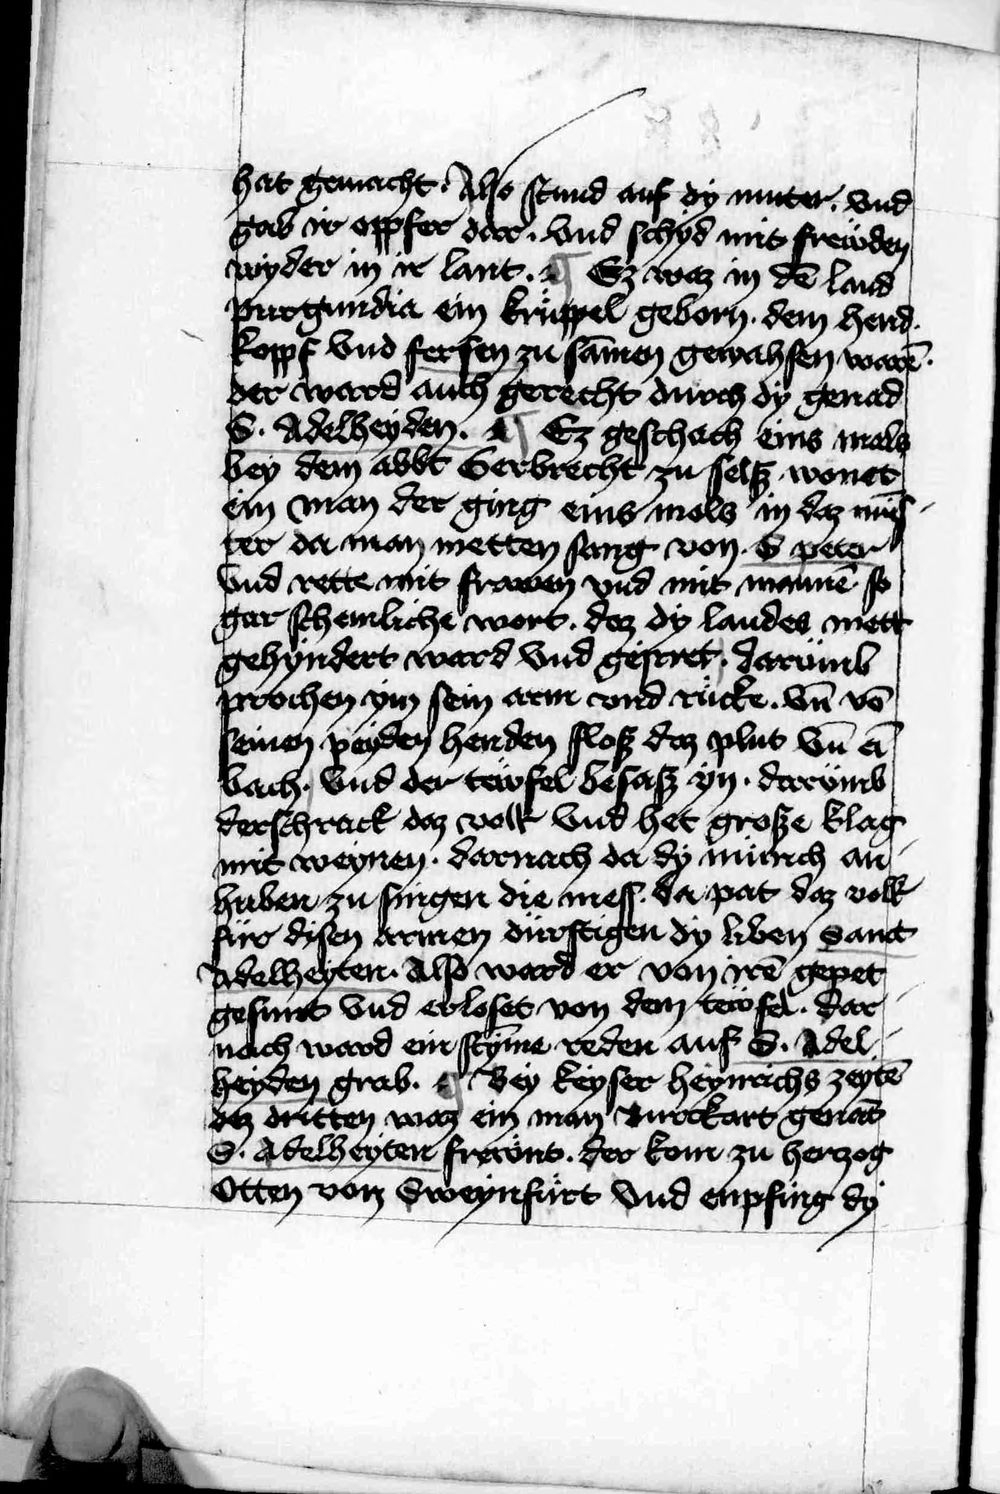 hat gemacht. Also stund auf dy muter. vnd
gab ir oppfer dar. vnd schyd mit frewden
wyder in ir lant. ¶ Ez waz in dē land
Purgundia ein krüppel geborn. dem hend.
kopf vnd fersen zu sāmen gewahsen warē.
der ward auch gerecht durch dy genad
S. Adelheyden. ¶ Ez geschach eins mals
bey dem abbt Gerbrecht zu selsz wonet
ein man der ging eins mols in daz müs
ter da man metten sang von S peter
vnd rette mit frawen vnd mit mannē so
gar schemliche wort. daz dy laudes mett
gehyndert ward vnd geirret. darümb
prochen ym sein arm vnd rücke. vn̄ vō
seinen peyden henden flosz daz plut vn̄ ei
bach. vnd der tewfel besasz yn. darümb
derschrack daz volk vnd het grosze klag
mit weynen. darnach da dy münich an
huben zu singen die mess. da pat daz volk
für disen armen dürftigen dy liben Sant
Adelheyten. Also ward er von irē gepet
gesunt vnd erloset von dem tewfel. dar
nach ward ein stȳme reden auf S. Adel
heyden grab. ¶ Bey keyser heynrichs zeytē
dez dritten waz ein man Burckart genāt
S. Adelheyten frewnt. der kom zu herzog
Otten von Sweynfurt vnd enpfing dy